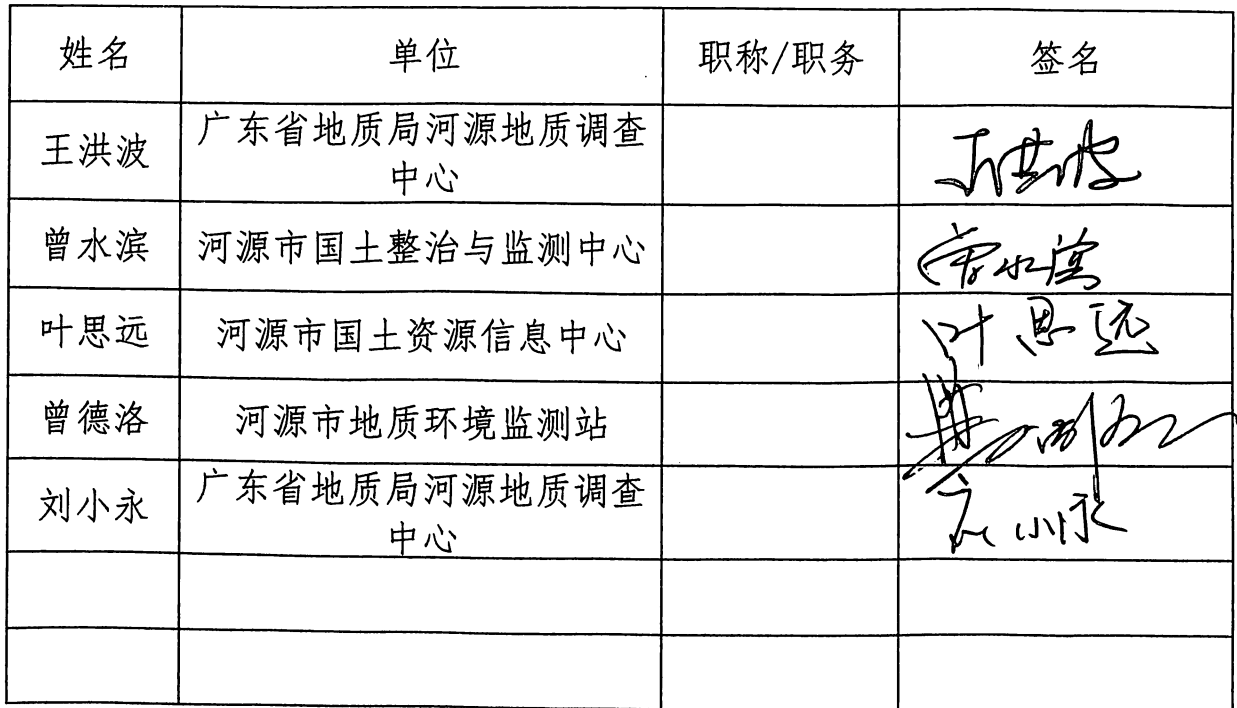 姓名 单位 职称/职务 签名
王洪波 广东省地质局河源地质调查 王洪波
中心
曾水滨 河源市国土整治与监测中心 曾水滨
叶思远 河源市国土资源信息中心 叶思远
曾德洛 河源市地质环境监测站
刘小永 广东省地质局河源地质调查 刘小永
中心